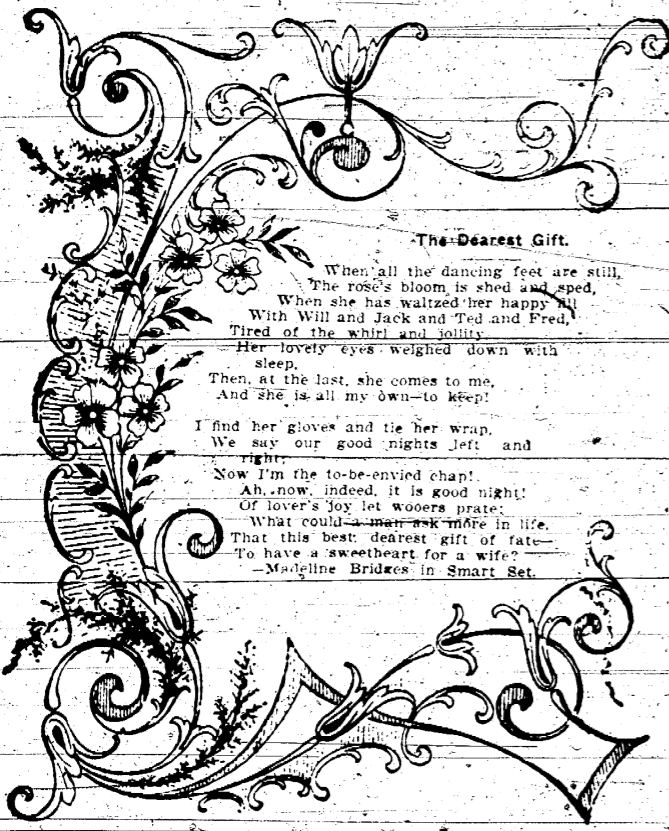 The Dearest Gift.
When all the dancing feet are still,
The rose's bloom is shed and sped,
When she has waltzed her happy fill
With Will and Jack and Ted and Fred,
Tired of the whirl and jollity,
Her lovely eyes weighed down with
sleep,
Then, at the last, she comes to me,
And she is all my own—to keep!
I find her gloves and tie her wrap,
We say our good nights left and
right;
Now I'm the to-be-envied chap!
Ah, now, indeed, it is good night!
Of lover's joy let wooers prate;
What could a man ask more in life,
That this best, dearest gift of fate—
To have a sweetheart for a wife?
—Madeline Bridges in Smart Set.